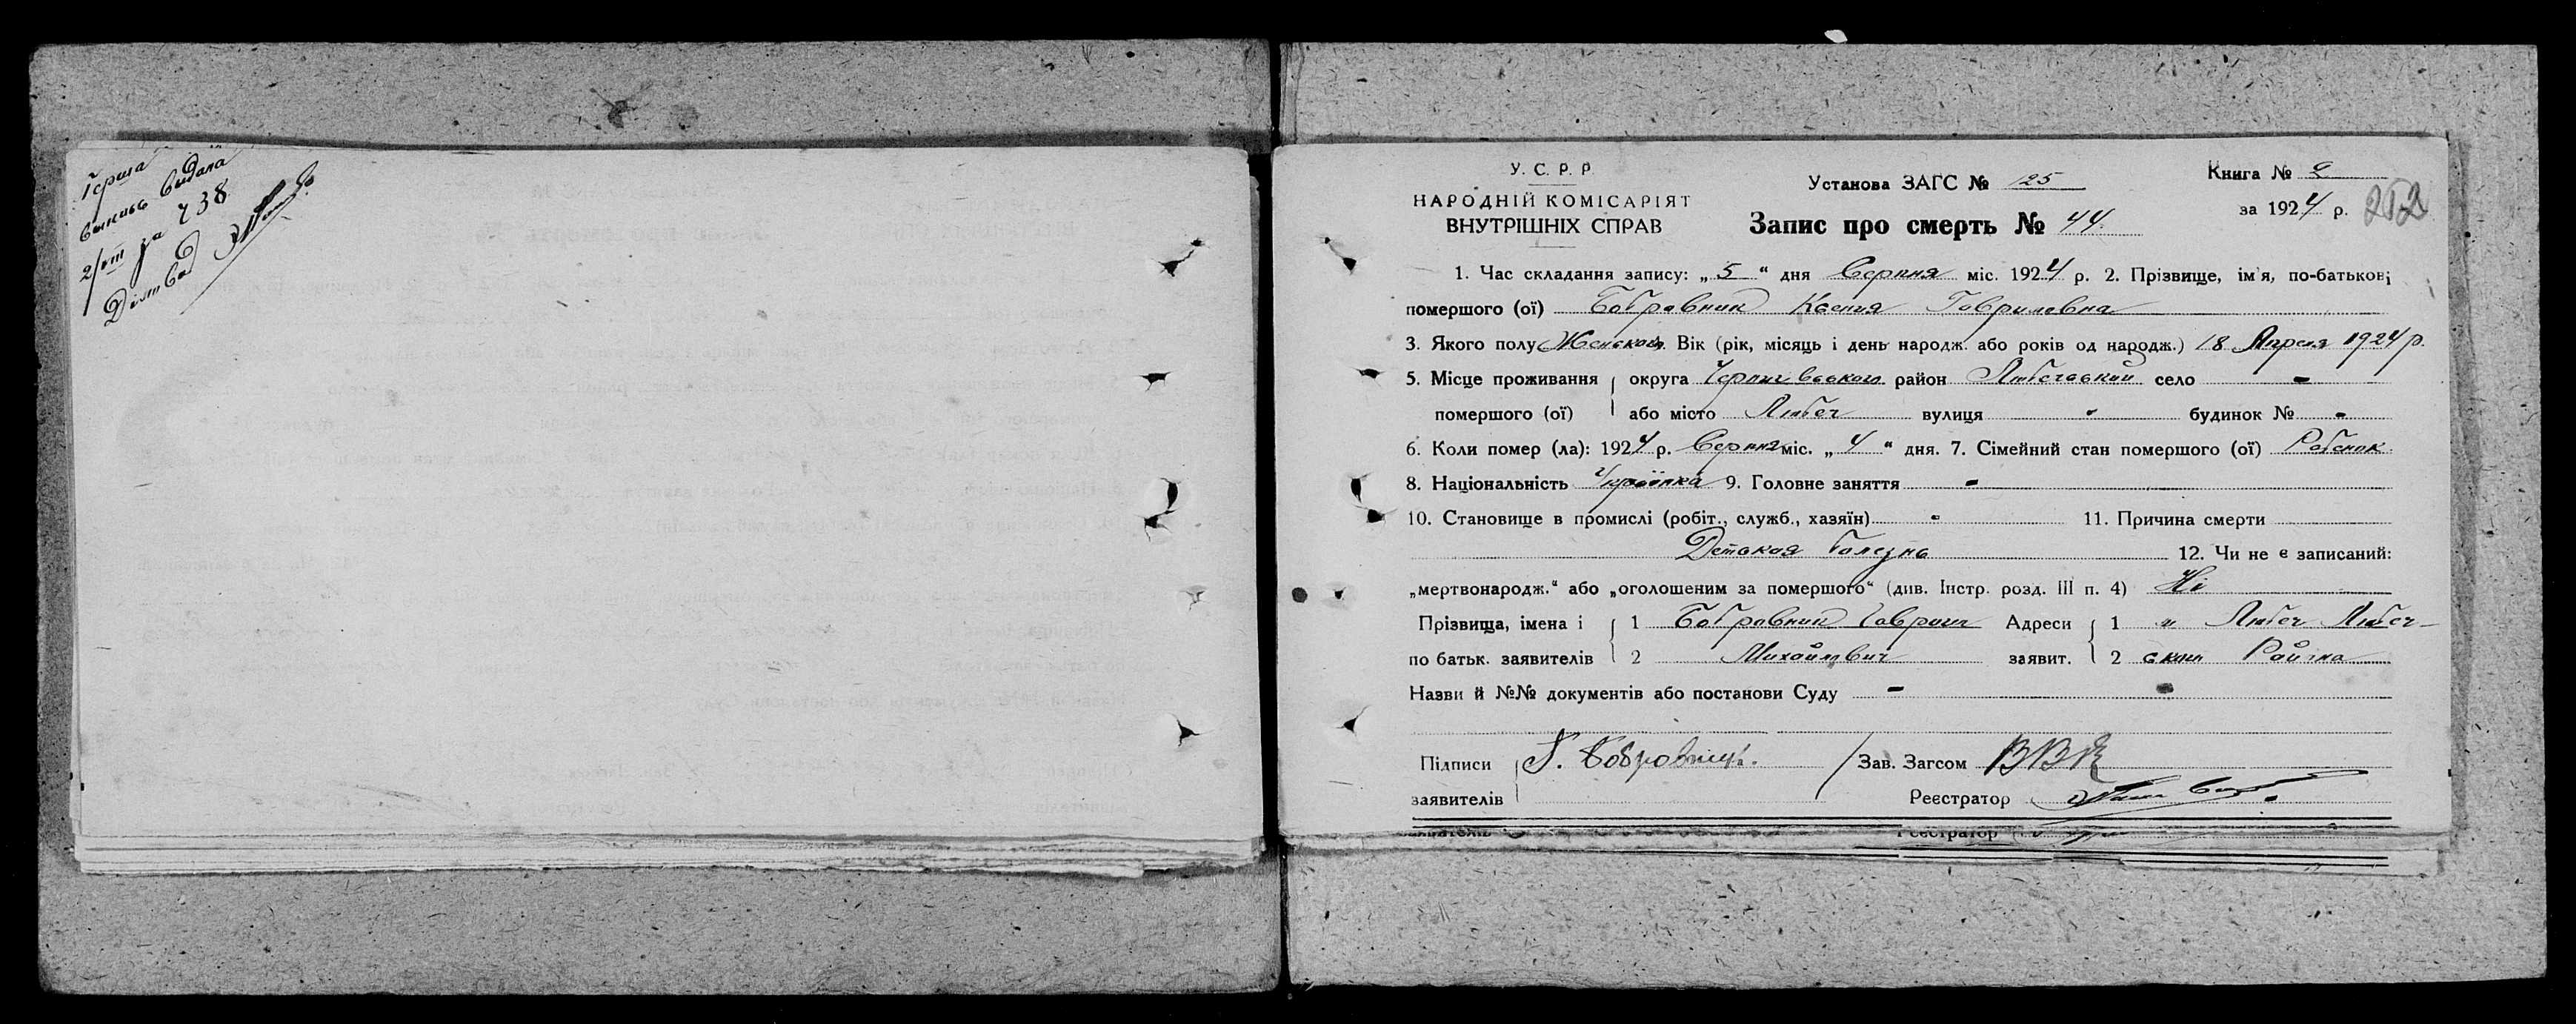 Перша
выпись выдана
за 738
У. С. Р. Р.
НАРОДНІЙ КОМІСАРІЯТ
ВНУТРІШНІХ СПРАВ
Установа ЗАГС № 125
Запис про смерть № 44.
Книга № 2
за 1924 р. 252
1. Час складання запису: „ 5 “ дня Серпня міс. 1924 р. 2. Прізвище, ім'я, по-батькові
помершого (ої) Бобровник Ксения Гавриловна
3. Якого полу Женского. Вік (рік, місяць і день народж. або років од народж.) 18 Апреля 1924 р.
5. Місце проживання округа Черниговського район Любечський село -
помершого (ої) або місто Любеч вулиця - будинок № -
6. Коли помер (ла): 1924 р. Серпня міс. „ 4 “ дня. 7. Сімейний стан помершого (ої) Ребенок
8. Національність Українка 9. Головне заняття -
10. Становище в промислі (робіт., служб., хазяїн) - 11. Причина смерти
Детская болезнь 12. Чи не є записаний:
„мертвонародж.“ або „оголошеним за помершого“ (див. Інстр. розд. III п. 4) Ні
Прізвища, імена і 1 Бобровник Гаврил Адреси 1 м Любеч Любеч-
по батьк. заявителів 2 Михайлович заявит. 2 ским Района
Назви й №№ документів або постанови Суду -
Підписи Г. Бобровник. Зав. Загсом
заявителів Реєстратор
Реєстратор